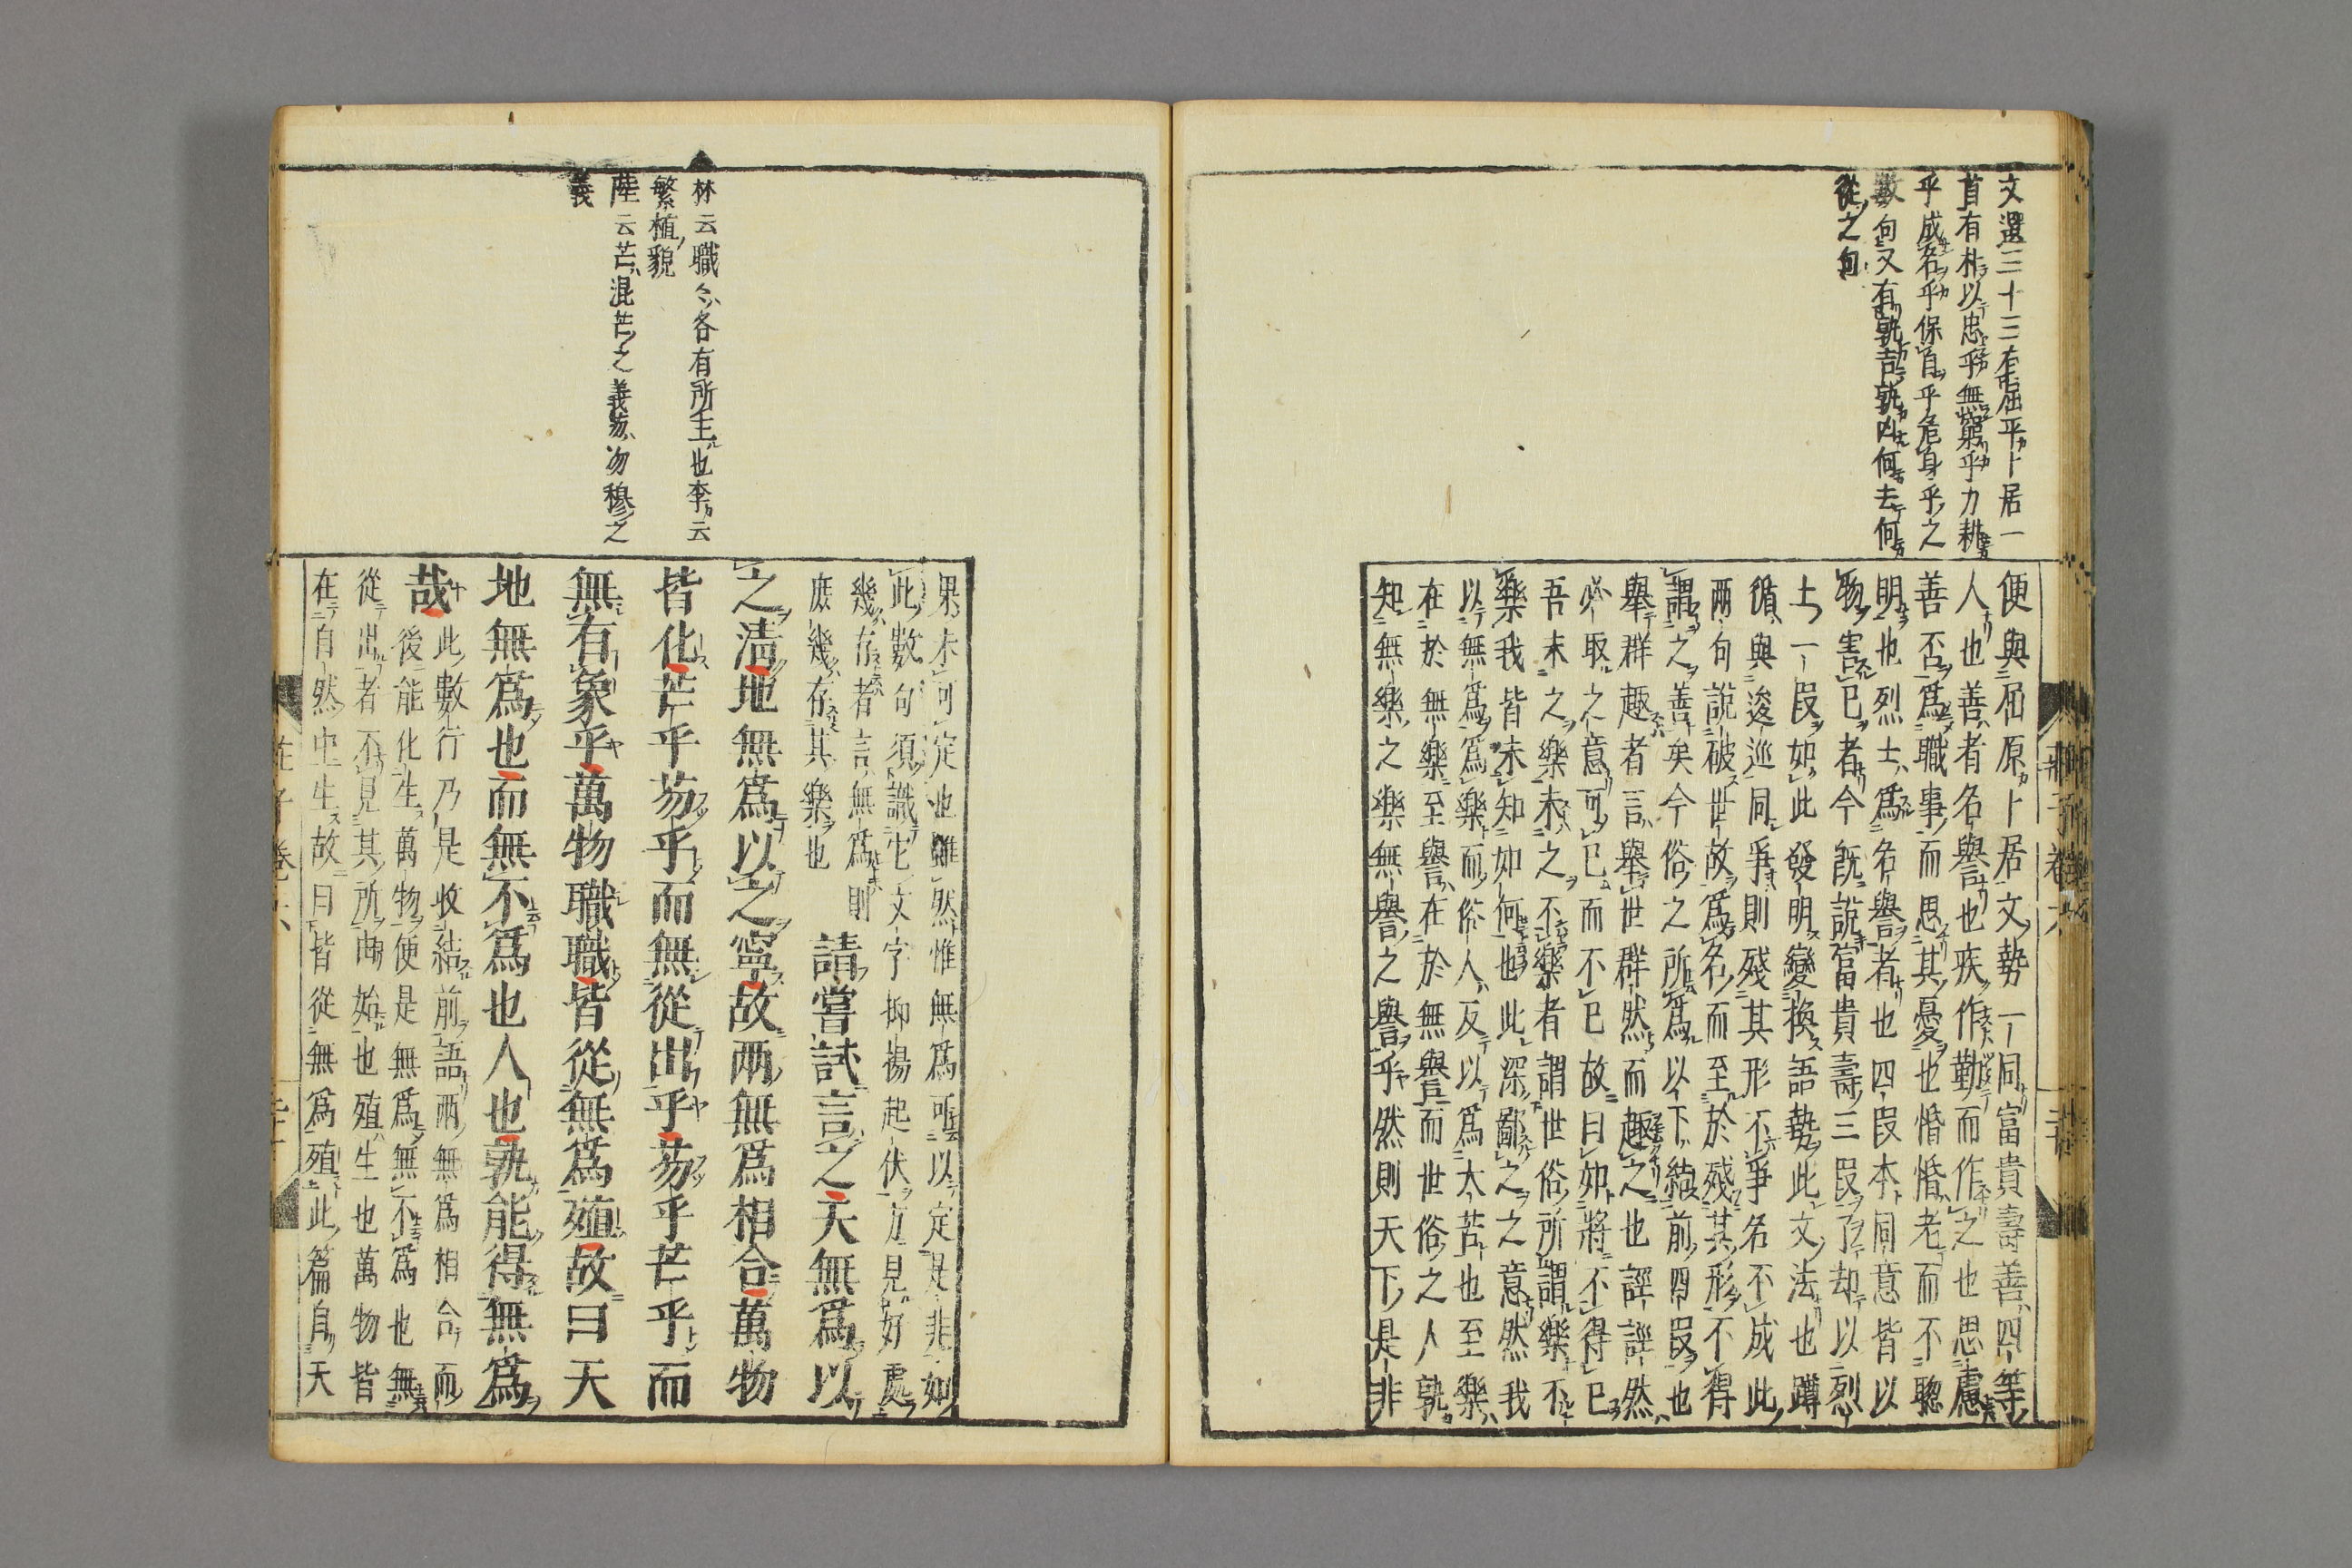 文選三十三有屈平卜居一
首有朴以忠乎無窮乎力耕
乎成名乎保自乎危身乎之
數句又有孰吉孰凶何去何
從之句
便與屈原卜居文勢一同富貴壽善四等
人也善者名譽也疾作勤而作之也思慮
善否爲職事而思其憂也惛惛老而不聦
明也烈士爲名譽者也四段本同意皆以
物害已者今既說富貴壽三段了却以烈
士一段如此發明變換語勢此文法也蹲
循與逡巡同爭則殘其形不爭名不成此
兩句說破世故爲名而至於殘其形不得
謂之善矣今俗之所爲以下結前四段也
舉群趣者言舉世群然而趣之也誙誙然
必取之意可已而不已故曰如將不得已
吾未之樂未之不樂者謂世俗所謂樂不
樂我皆未知如何也此深鄙之之意然我
以無爲爲樂而俗人反以爲大苦也至樂
在於無樂至譽在於無譽而世俗之人孰
知無樂之樂無譽之譽乎然則天下是非
林云職々各有所主也李云
繁植貌
陸云芒混芒之義芴沕穆之
義
果未可定也雖然惟無爲可以定是非如
此數句須識它文字抑揚起伏方見好處
幾存者言無爲則
庶幾存其樂也
請嘗試言之天無爲以
之清地無爲以之寧故兩無爲相合萬物
皆化芒乎芴乎而無從出乎芴乎芒乎而
無有象乎萬物職職皆從無爲殖故曰天
地無爲也而無不爲也人也孰能得無爲
哉
此數行乃是收結前語兩無爲相合而
後能化生萬物便是無爲無不爲也無
從出者不見其所由始也殖生也萬物皆
在自然中生故曰皆從無爲殖此篇自天
莊子卷六